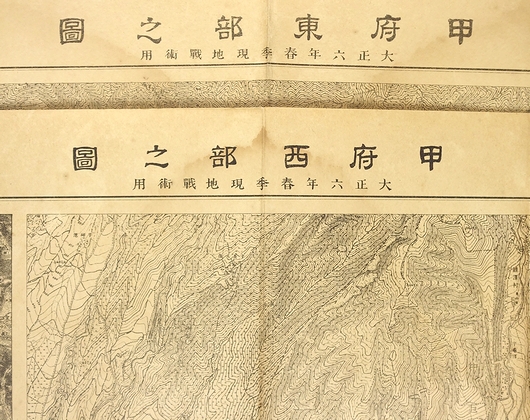 甲府東部之圖
大正六年春季現地戰術用
甲府西部之圖
大正六年春季現地戰術用